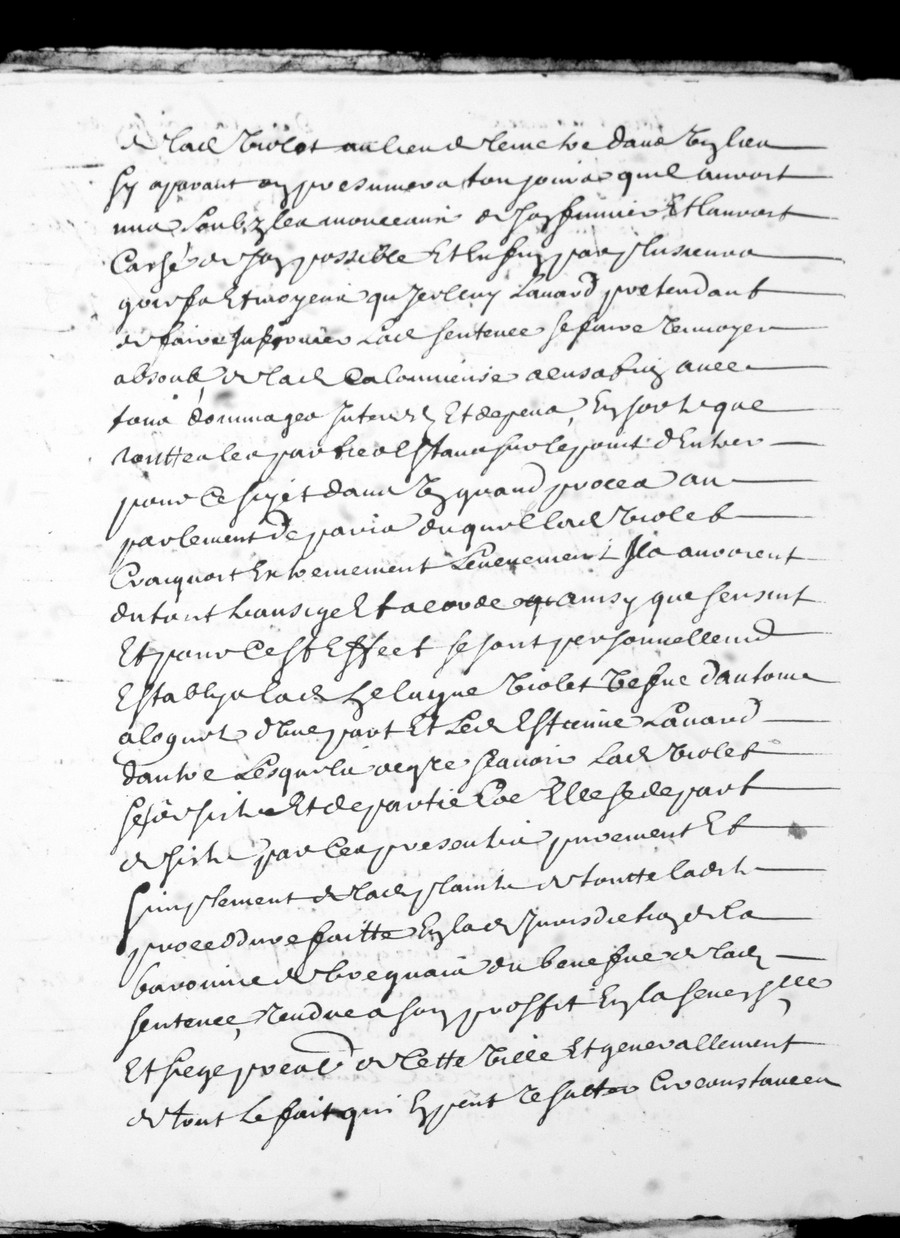 de lad violet au lieu de lemettre dans un lieu
sy aparant on presumera tousjours quil auroit
mis soubz les monceaux de son fumier Et lauroit
Caché de son possible Et enfin par plusieurs
Et moyens led Lavard pretendant
de faire lad sentence se faire renvoyer
absoubz de lad Calomnieuse acusation avec
tous dommages Interestz Et depens En sorte que
touttes les parties Estans sur le point d'Entrer
pour Ce sujet dans un grand proces au
parlement de paris duquel lad violet
Craignort Extremement Levenement Ils auroient
du tout transigé Et acordé ainsy que sensuit
Et pour Cest Effect se sont personnellemd
Establys lad helayne violet vefve d'antoine
aloquet d'une part Et Led Estienne Lavard
dautre Lesquels de gré scavoir Lad violet
sest desiste Et departie Co͞e Elle se depart
et desiste par Ces presentes purement Et
simplement de lad plainte de toutte ladite
procedure faitte En lad Jurisdiction de la
baronnie de brequais du benefice de lad
sentence, rendue a son proffit En la senesch͞ee
Et siege preal de Cette ville Et generallement
de tout Le fait qui En peut resulter Circonstances